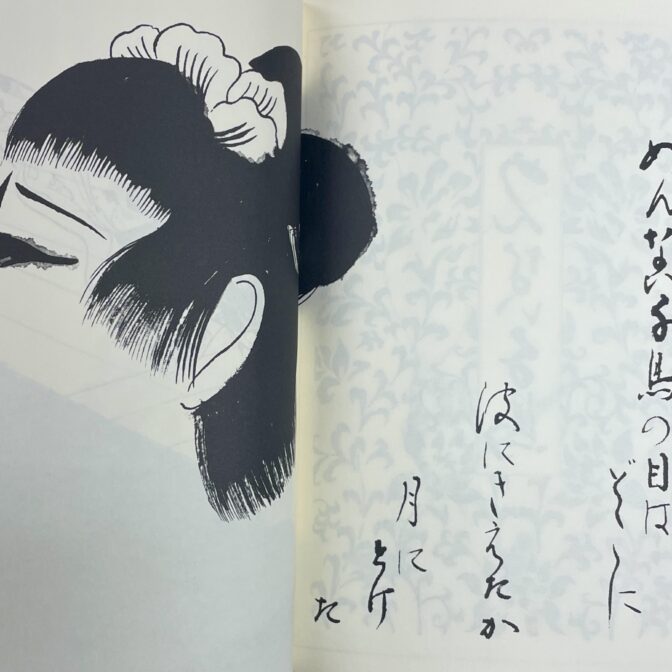 めんない千鳥の目は
どこに
波にきえたか
月に
とけ
た